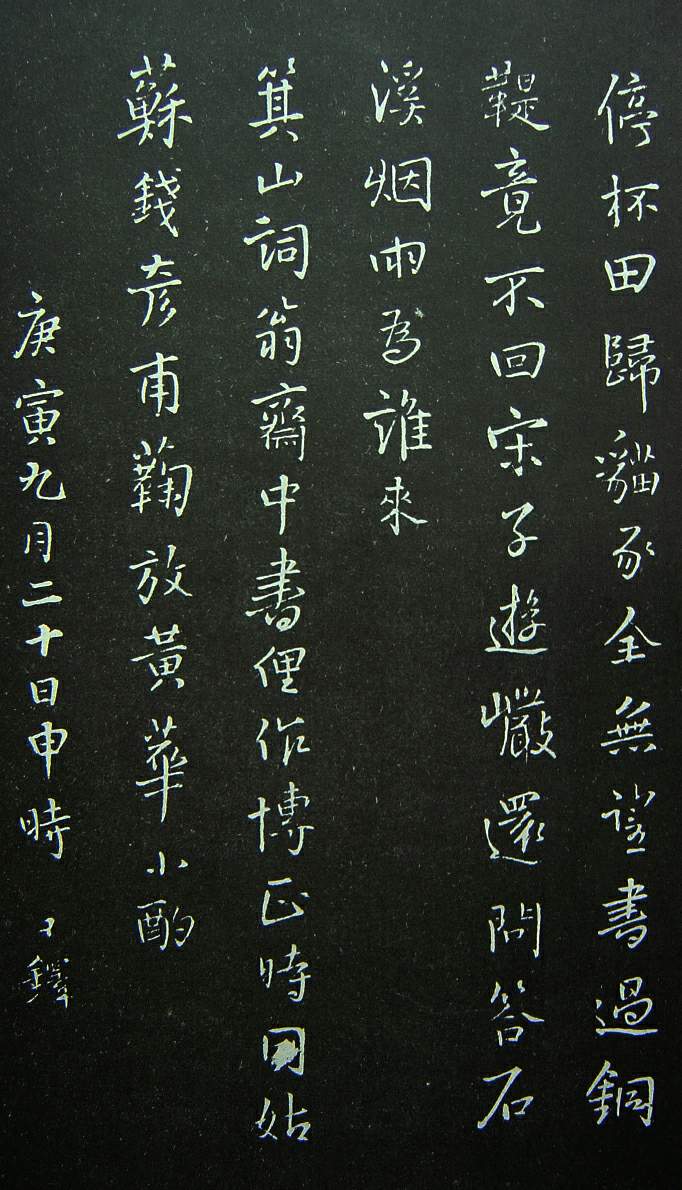 停杯田歸貓豕全無聲書過銅
鞮竟不回宋子遊巖還問答石
溪烟雨為誰來
箕山詞翁齋中書俚作博正時同姑
蘇錢彥甫菊放黃華小酌
庚寅九月二十日申時 王鐸